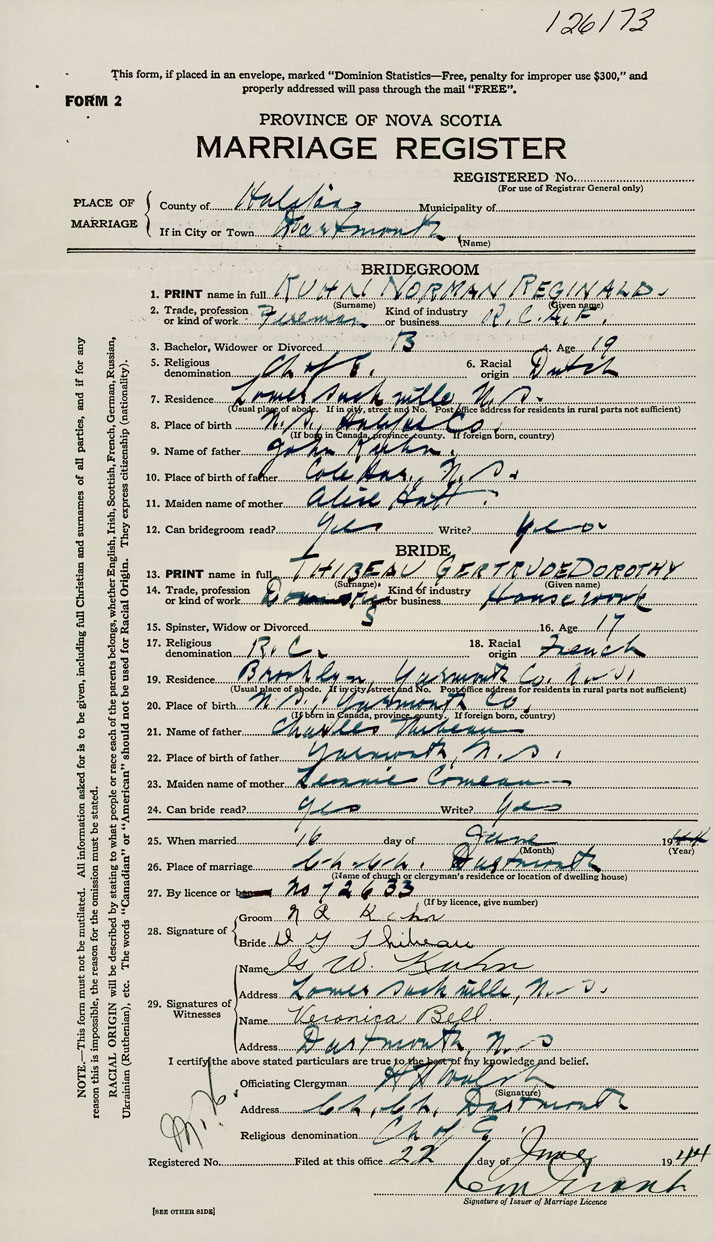 126173
This form, if placed in an envelope, marked "Dominion Statistics—Free, penalty for improper use $300," and
properly addressed will pass through the mail "FREE".
FORM 2
PROVINCE OF NOVA SCOTIA
MARRIAGE REGISTER
REGISTERED No.
(For use of Registrar General only)
PLACE OF MARRIAGE
County of Halifax Municipality of
If in City or Town Dartmouth
(Name)
BRIDEGROOM
1. PRINT name in full KUHN NORMAN REGINALD.
(Surname) (Given name)
2. Trade, profession or kind of work Fireman Kind of industry or business R.C.A.F.
3. Bachelor, Widower or Divorced B 4. Age 19
5. Religious denomination Ch of E. 6. Racial origin Dutch
7. Residence Lower Sackville, N.S.
(Usual place of abode. If in city, street and No. Post office address for residents in rural parts not sufficient)
8. Place of birth N.S. Halifax Co.
(If born in Canada, province, county. If foreign born, country)
9. Name of father John Kuhn.
10. Place of birth of father Cole Har. N.S.
11. Maiden name of mother Alice Hatt.
12. Can bridegroom read? Yes Write? Yes
BRIDE
13. PRINT name in full THIBEAU GERTRUDE DOROTHY
(Surname) (Given name)
14. Trade, profession or kind of work Kind of industry or business Housework
15. Spinster, Widow or Divorced S 16. Age 17
17. Religious denomination R.C. 18. Racial origin French
19. Residence Brooklyn, Yarmouth Co. N.S.
(Usual place of abode. If in city, street and No. Post office address for residents in rural parts not sufficient)
20. Place of birth N.S. Yarmouth Co.
(If born in Canada, province, county. If foreign born, country)
21. Name of father Charles Thibeau
22. Place of birth of father Yarmouth, N.S.
23. Maiden name of mother Comeau
24. Can bride read? Yes Write? Yes
25. When married 16 day of June 1944
(Month) (Year)
26. Place of marriage Ch. Ch. Dartmouth
(Name of church or clergyman's residence or location of dwelling house)
27. By licence or banns No 72633
(If by licence, give number)
28. Signature of
Groom N R Kuhn
Bride D G Thibeau
29. Signatures of Witnesses
Name G W. Kuhn
Address Lower Sackville, N.S.
Name Veronica Bell.
Address Dartmouth, N S
I certify the above stated particulars are true to the best of my knowledge and belief.
Officiating Clergyman Walsh
(Signature)
Address Ch. Ch. Dartmouth
Religious denomination Ch of E.
Registered No. Filed at this office 22 day of June 1944
Signature of Issuer of Marriage Licence
[SEE OTHER SIDE]
NOTE.—This form must not be mutilated. All information asked for is to be given, including full Christian and surnames of all parties, and if for any
reason this is impossible, the reason for the omission must be stated.
RACIAL ORIGIN will be described by stating to what people or race each of the parents belongs, whether English, Irish, Scottish, French, German, Russian,
Ukrainian (Ruthenian), etc. The words "Canadian" or "American" should not be used for Racial Origin. They express citizenship (nationality).